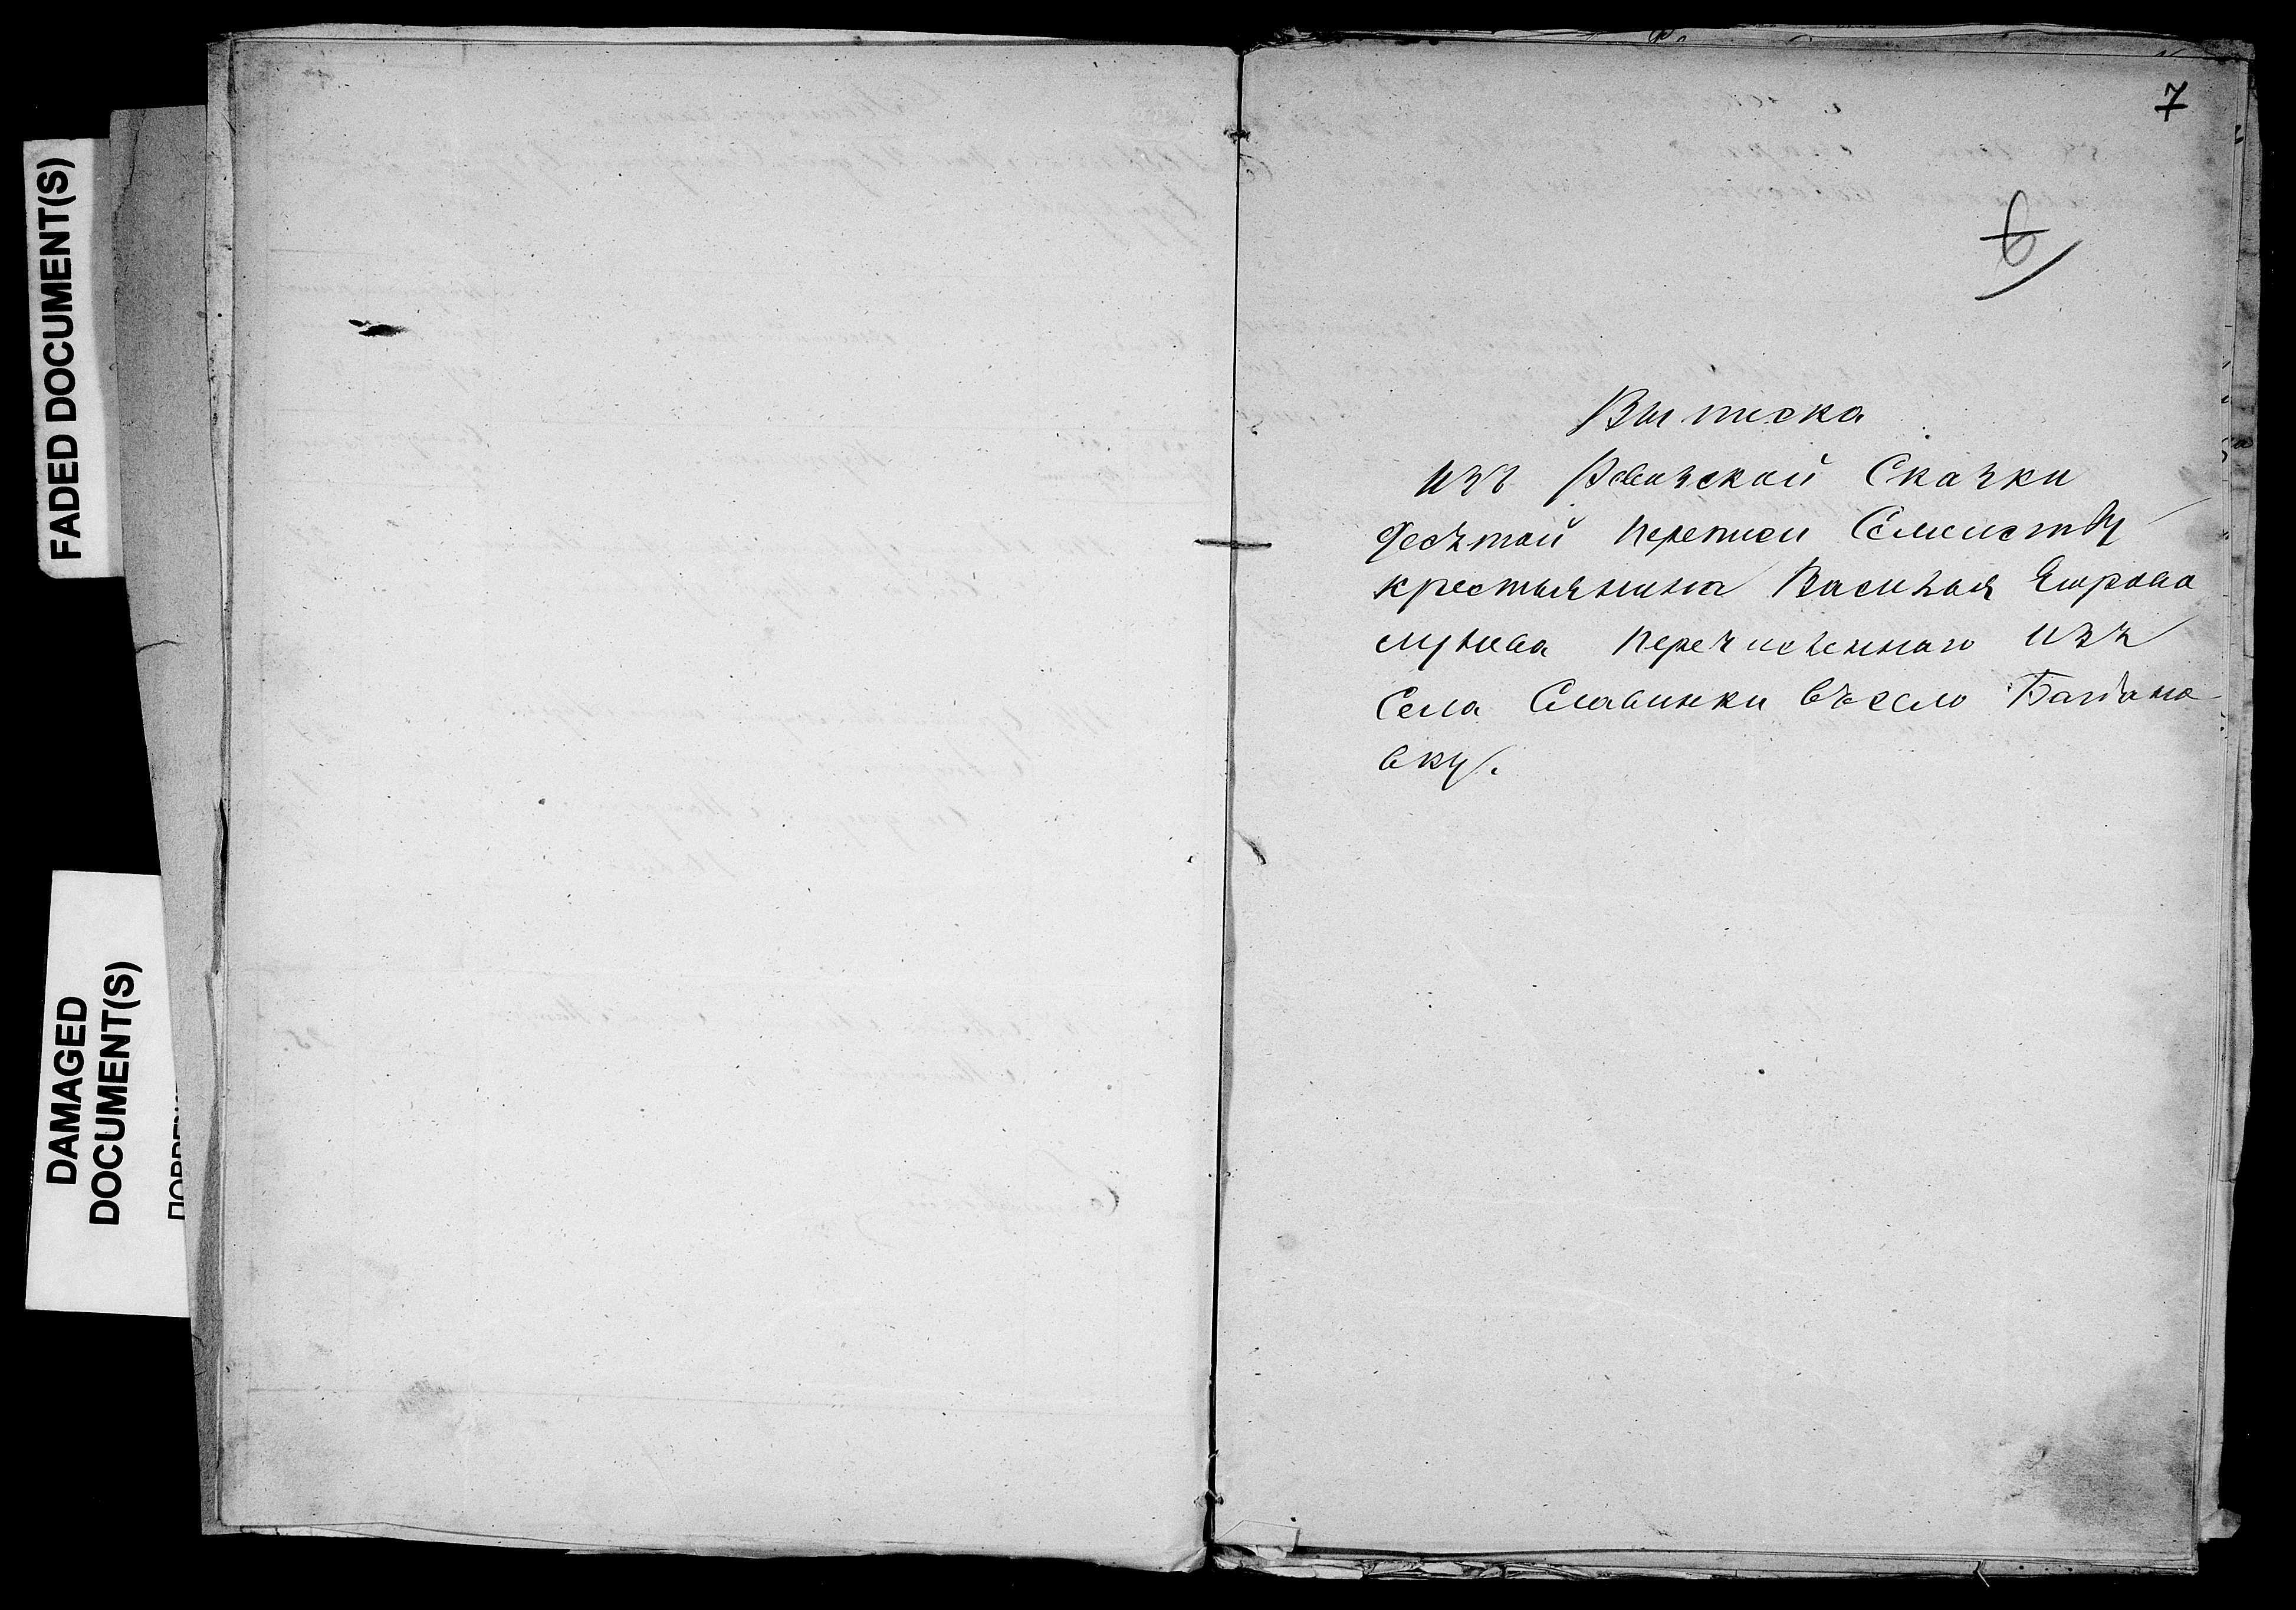 FADED DOCUMENT(S)
DAMAGED
DOCUMENT(S)
7
6
Выписка
изъ Ревизской Сказки
Десятой переписи Семейству
крестьянина Василья Егорова
перечисленнаго изъ
Села Славинки въ село Богдано
вку.